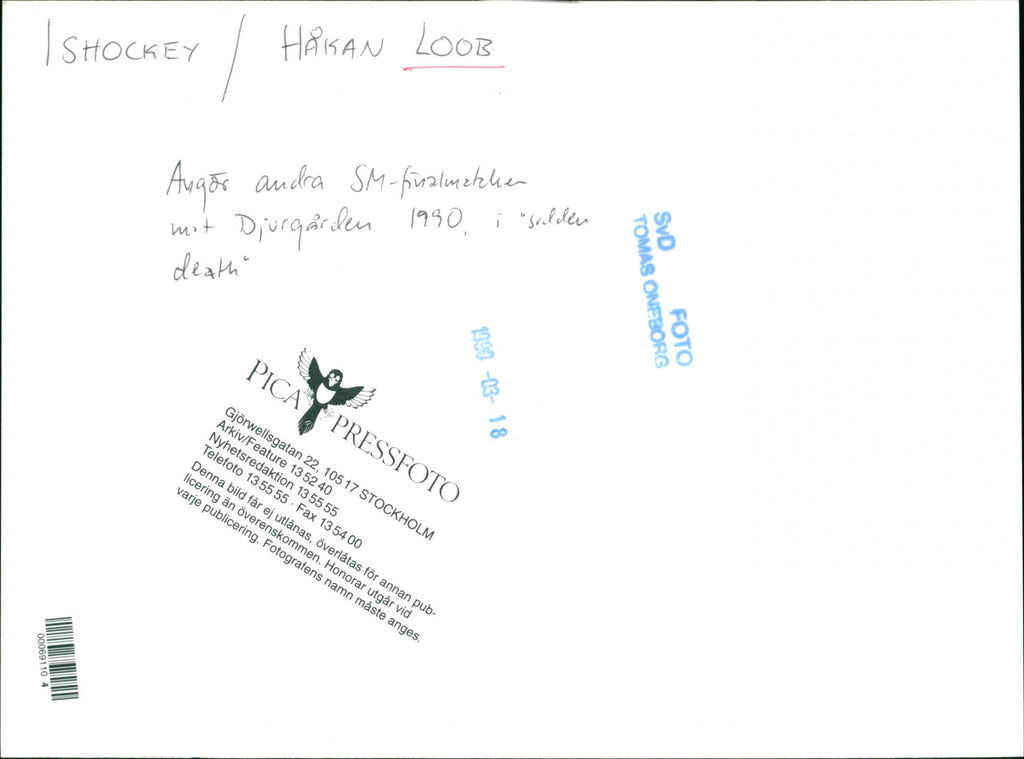 ISHOCKEY / HÅKAN LOOB
Avgör andra SM-finalmatchen
mot Djurgården 1990, i "sudden
death"
SvD FOTO
TOMAS ONEBORG
1990 -03- 18
PICA PRESSFOTO
Gjörwellsgatan 22, 105 17 STOCKHOLM
Arkiv/Feature 13 52 40
Nyhetsredaktion 13 55 55
Telefoto 13 55 55 · Fax 13 54 00
Denna bild får ej utlånas, överlåtas för annan pub-
licering än överenskommen. Honorar utgår vid
varje publicering. Fotografens namn måste anges.
00069110 4